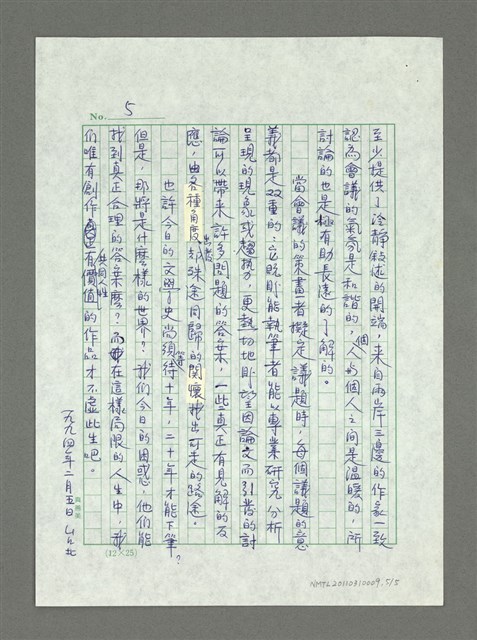 No. 5
至少提供了冷靜敍述的開端，來自兩岸三邊的作家一致
認為會議的氣氛是和諧的，人的個人之間是溫暖的，所
個
討論的也是極有助長遠的了解的。
當會議的策畫者擬定議題時，每個議題的意
義都是双重的：立既則能執筆者能以專業研究分析
呈現的現象或趨勢，更熱切地則望因論文而引發的討
論可以帶來許多問題的答案，一些真正有見解的反
應，由各種角度、却殊途同歸的關懷找出可走的路途。
出發
也許今日的文學史尚須待十年，二十年才能下筆？
等
但是，那將是什麼樣的世界？我們今日的困惑，他們能
找到真正合理的答案麼？而在這樣局限的人生中，我
們唯有創作真正有價值的作品才不虛此生吧。
共同人性
一九九四年二月五日 台北
(12×25)
NMTL20110310009.5/5